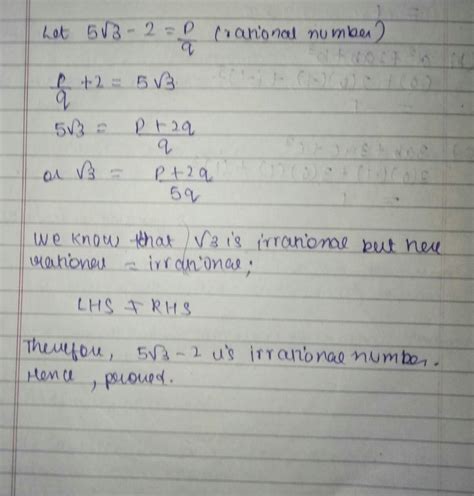 Let 5√3 - 2 = p/q (rational number)
p/q + 2 = 5√3
5√3 = p+2q/q
or √3 = p+2q/5q
We know that √3 is irrational but here
rational = irrational;
LHS ≠ RHS
Therefore, 5√3 - 2 is irrational number.
Hence, proved.